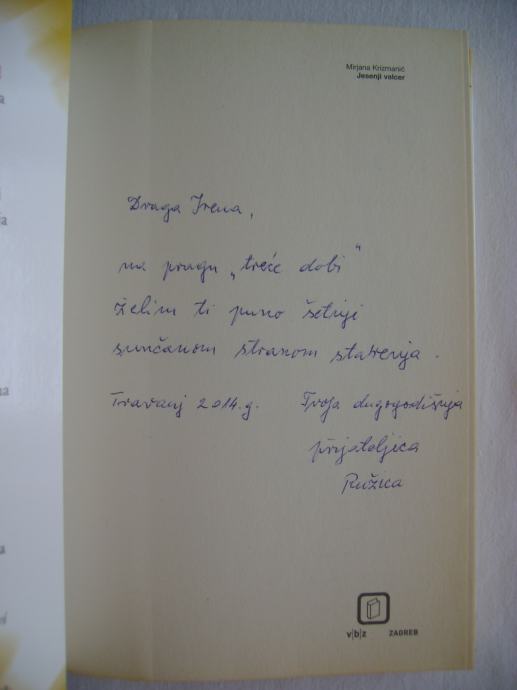 Mirjana Krizmanić
Jesenji valcer
Draga Irena,
na pragu „treće dobi"
želim ti puno šetnji
sunčanom stranom starenja.
Travanj 2014.g. Tvoja dugogodišnja
prijateljica
Ružica
v|b|z ZAGREB